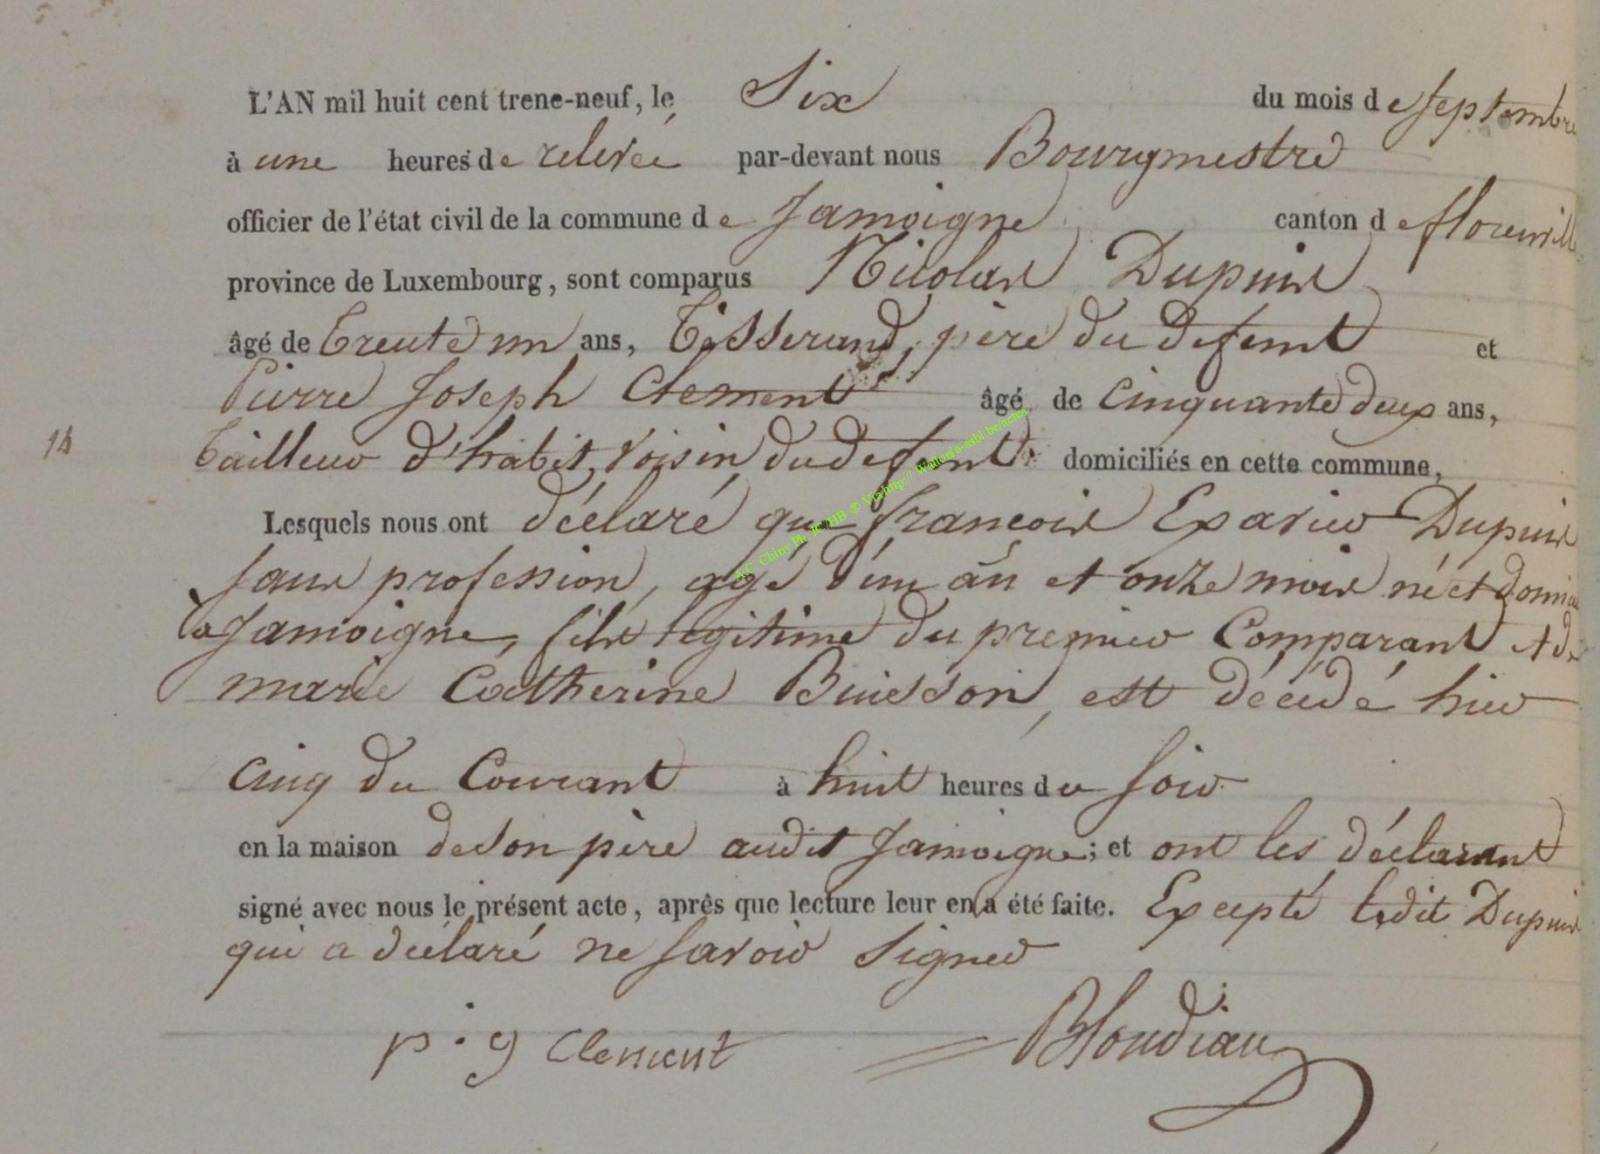 L'AN mil huit cent trene-neuf, le Six du mois de septembre
à une heures de relevée par-devant nous Bourgmestre
officier de l'état civil de la commune de Jamoigne canton de florenvill
province de Luxembourg, sont comparus Nicolas Dupuis
âgé de trente un ans, tisserand, père du defunt et
Pierre Joseph Clement âgé de cinquante deux ans,
14 tailleur d'habit, voisin du defunt domiciliés en cette commune,
Lesquels nous ont déclaré que françois Exavier Dupuis
sans profession, agé d'un an et onze mois né et domi
à Jamoigne, fils légitime du premier Comparant et de
marie Catherine Buisson, est décédé hier
cinq du Courant à huit heures du soir
en la maison de son père audit Jamoigne; et ont les déclarant
signé avec nous le présent acte, après que lecture leur en a été faite. Excepté ledit Dupuis
qui a déclaré ne savoir signer
p. j Clement Blondiau